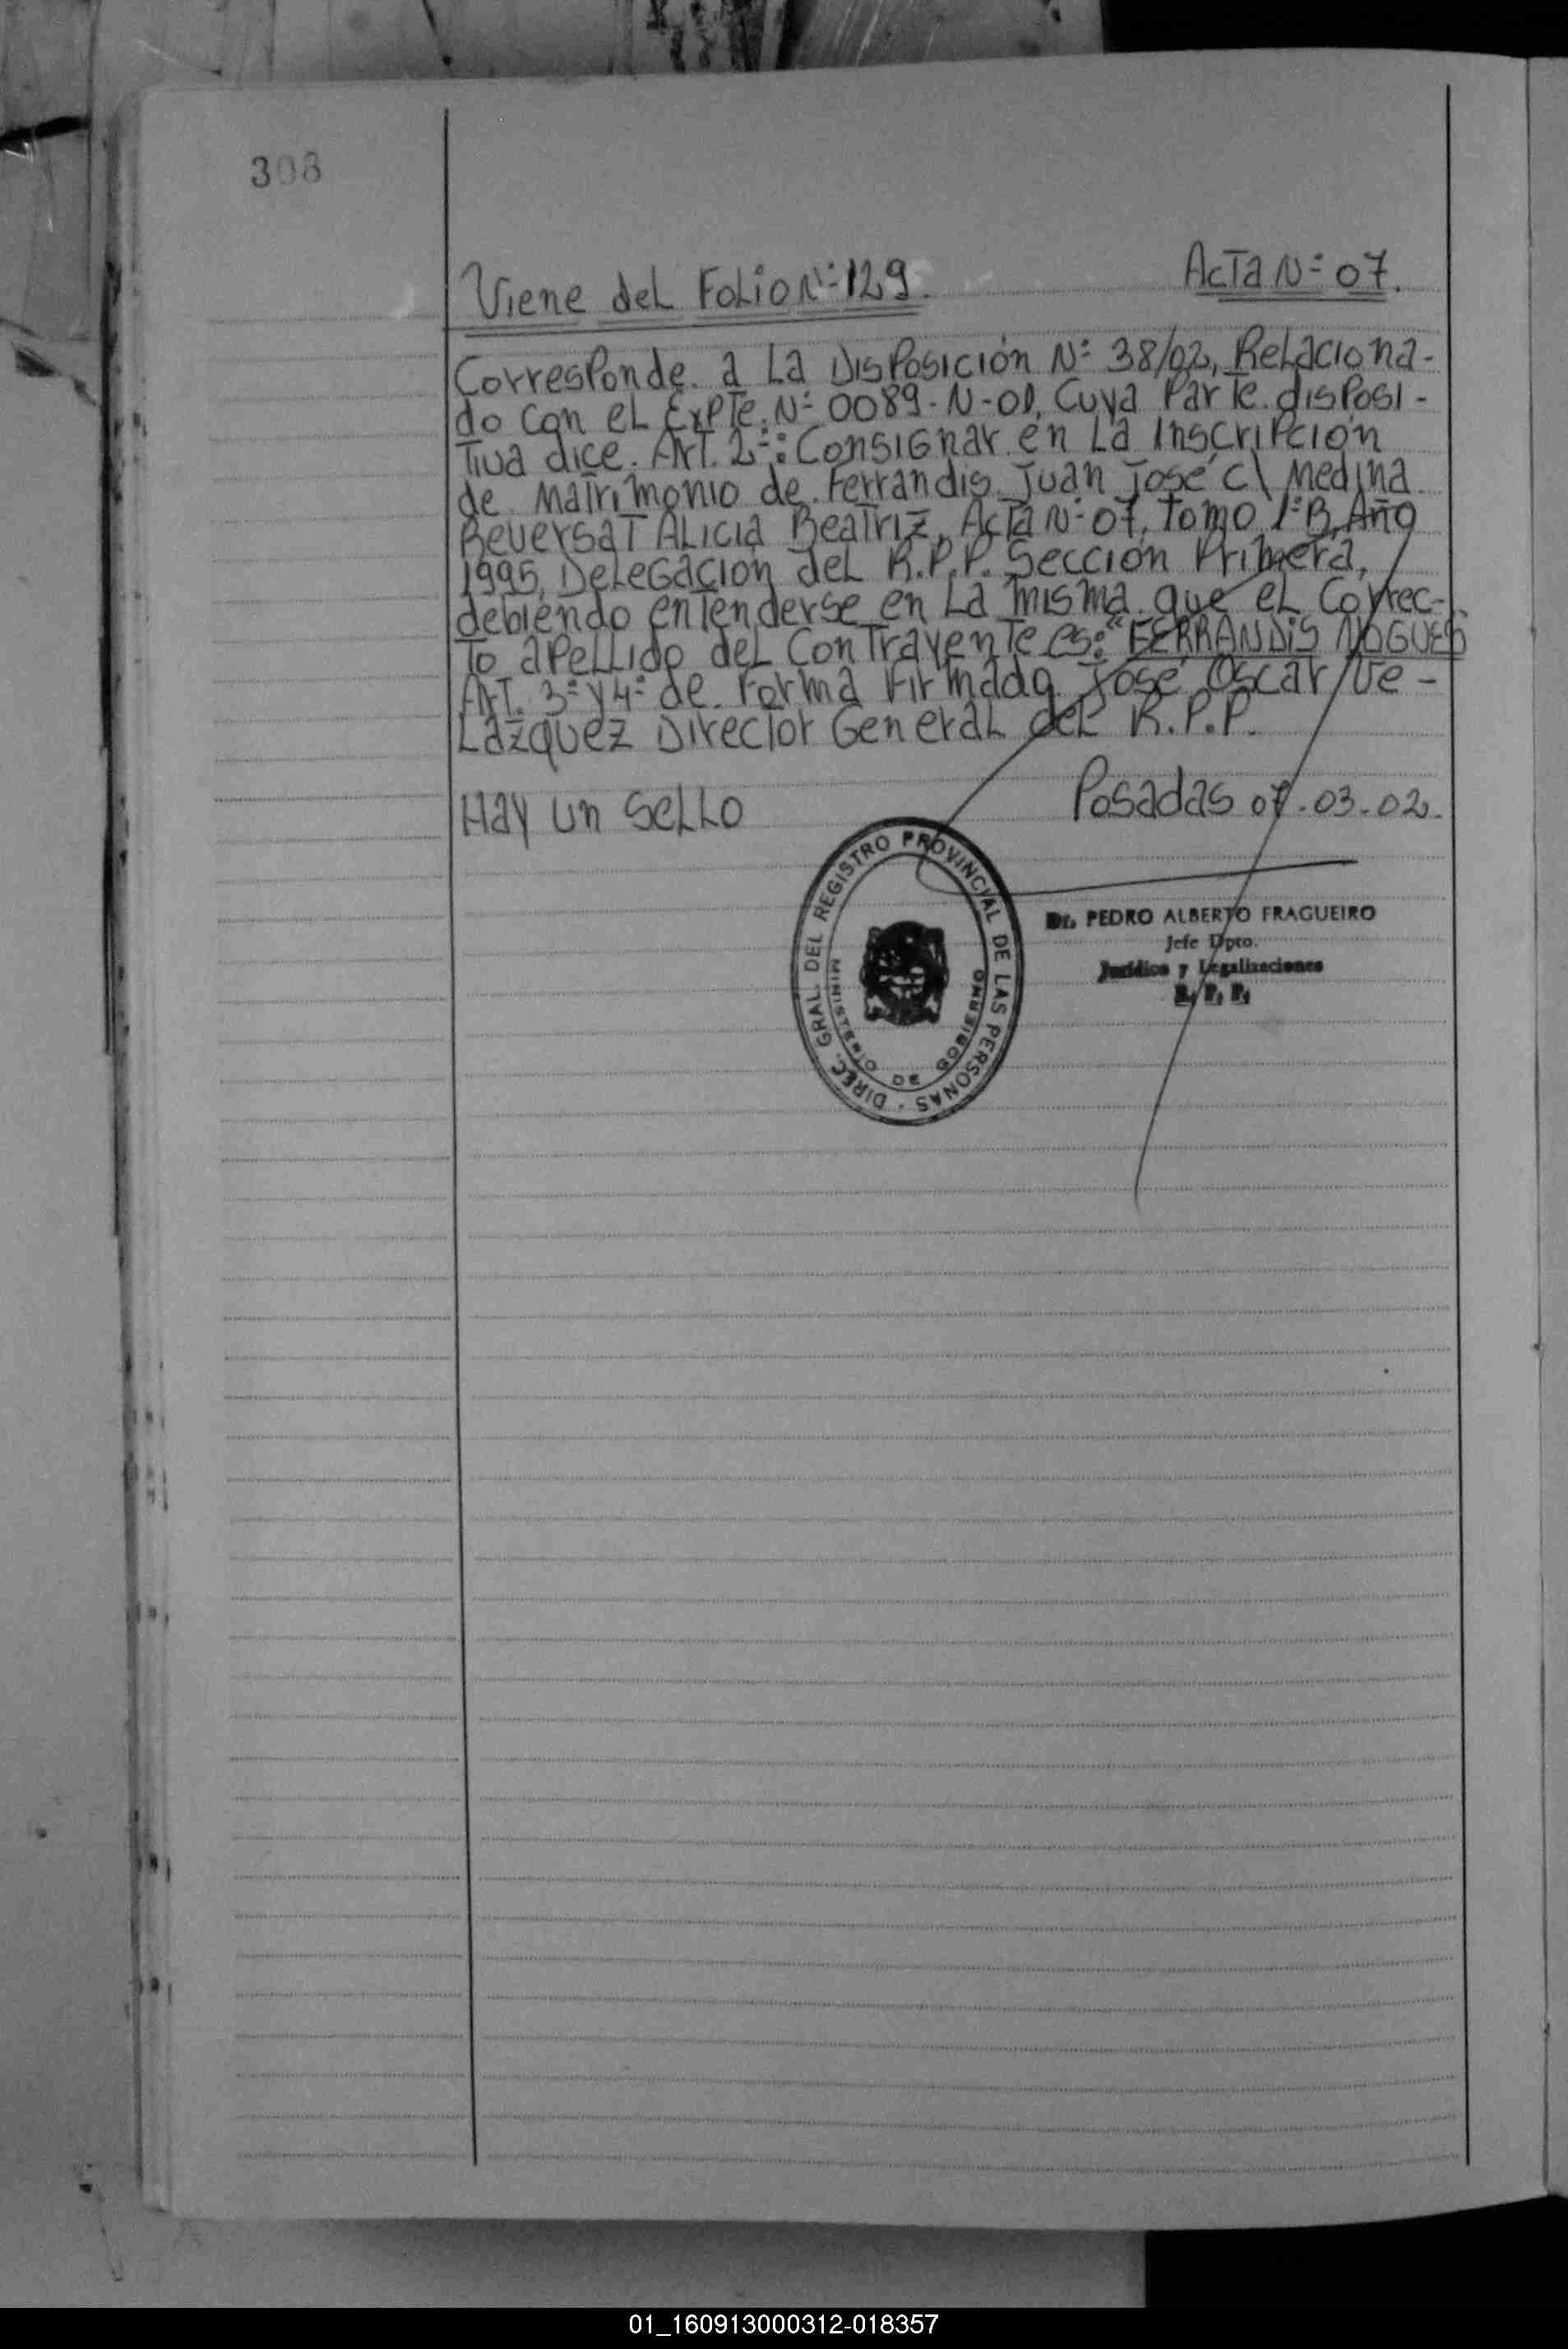 308
Viene del Folio Nº 129. Acta Nº 07.
Corresponde a La Disposición Nº 38/02, Relaciona-
do con el Expte. Nº 0089-N-01, Cuya Parte disposi-
Tiva dice. Art. 2º: Consignar en La Inscripción
de Matrimonio de Ferrandis Juan José c\ Medina
Reversat Alicia Beatriz, Acta Nº 07, Tomo 1º B, Año
1995, Delegación del R.P.P. Sección Primera,
debiendo entenderse en La misma que el Correc-
To apellido del Contrayente es: "FERRANDIS NOGUES
Art. 3º y 4º de Forma Firmado José Oscar Ve-
Lazquez Director General del R.P.P.
Hay un Sello Posadas 07-03-02.
DIREC. GRAL. DEL REGISTRO PROVINCIAL DE LAS PERSONAS -
MINISTERIO DE GOBIERNO
Dr. PEDRO ALBERTO FRAGUEIRO
Jefe Dpto.
Jurídico y Legalizaciones
R. P. P.
01_160913000312-018357